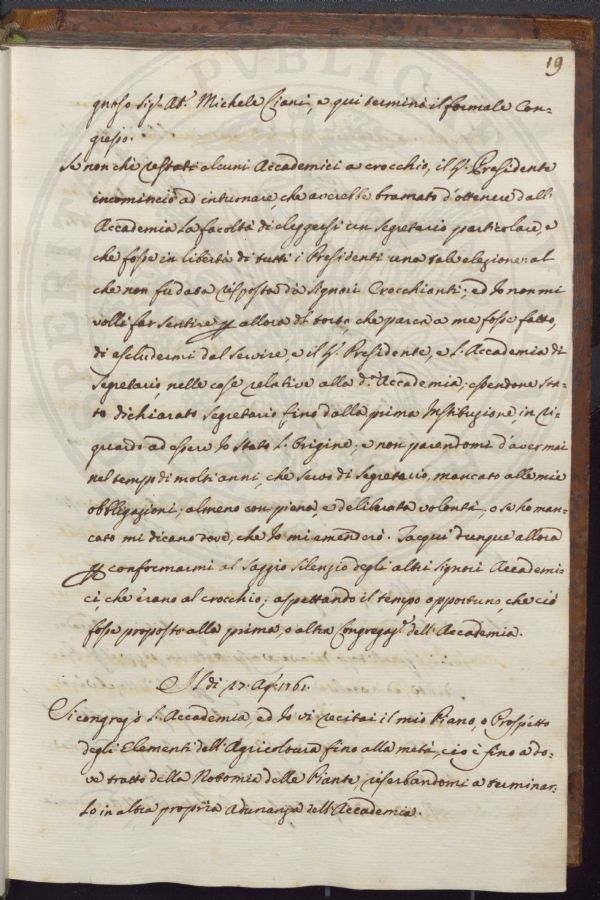 19
gnoso Sig.r Ab.e Michele Ciani, e qui terminò il formale Con=
gresso.
Se non chè restati alcuni Accademici a crocchio, il S.r Presidente
incominciò ad intuonare, che averebbe bramato d'ottenere dall'
Accademia la facoltà di eleggersi un Segretario particolare, e
che fosse in libertà di tutti i Presidenti una tale elezione: al
che non fu data risposta da' Signori Crocchianti; ed Io non mi
volli far sentire p allora d.l torto, che pareva a me fosse fatto,
di escludermi dal servire, e il S.r Presidente, e l'Accademia di
Segretario, nelle cose relative alla d.a Accademia; essendone sta=
to dichiarato Segretario fino dalla prima Instituzione, in ri=
guardo ad essere Io stato l'Origine; e non parendomi d'aver mai
nel tempo di molti anni, che servo di Segretario, mancato alle mie
obbligazioni, almeno con piena, e deliberata volontà, o se ho man=
cato mi dicano dove, che Io mi emenderò. Tacqui dunque allora
p conformarmi al saggio silenzio degli altri Signori Accademi=
ci, che erano al crocchio; aspettando il tempo opportuno, che ciò
fosse proposto alla prima, o altra Congregaz.e dell'Accademia.
Il dì 27. Ag.o 1761.
Si congregò l'Accademia, ed Io vi recitai il mio Piano, o Prospetto
degli Elementi dell'Agricoltura fino alla metà, cioè fino a do=
ve tratto della Notomia delle Piante, riserbandomi a terminar=
lo in altra propria Adunanza dell'Accademia.